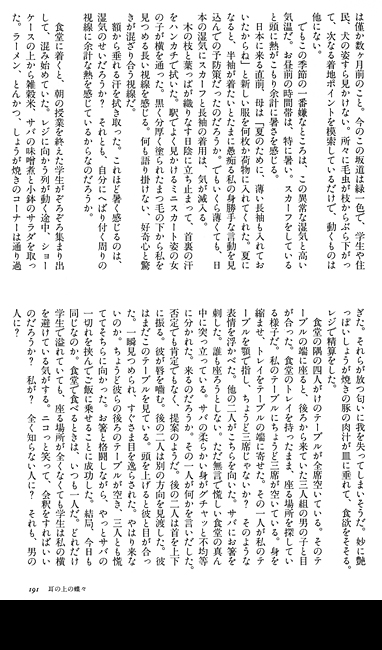 は僅か数ヶ月前のこと。今のこの坂道は緑一色で、学生や住
民、犬の姿すら見かけない。所々に毛虫が枝からぶら下がっ
て、次なる着地ポイントを模索しているだけで、動くものは
他にない。
でもこの季節の一番嫌なところは、この異常な湿気と高い
気温だ。お昼前の時間帯は、特に暑い。スカーフをしている
と頭に熱がこもり余計に暑さを感じる。
日本に来る直前、母は「夏のために、薄い長袖も入れてお
いたからね」と新しい服を何枚か荷物に入れてくれた。夏に
なると、半袖が着たいとまた愚痴る私の身勝手な言動を見
込んでの予防策だったのだろうか。でもいくら薄くても、日
本の湿気にスカーフと長袖の着用は、気が滅入る。
木の枝と葉っぱが織りなす日陰に立ち止まって、首裏の汗
をハンカチで拭いた。駅でよく見かけるミニスカート姿の女
の子が横を通った。黒く分厚く塗られたまつ毛の下から私を
見つめる長い視線を感じる。何も語り掛けない、好奇心と驚
きが混ざり合う視線だ。
額から垂れる汗を拭き取った。これほど暑く感じるのは、
湿気のせいだろうか？　それとも、自分にへばり付く周りの
視線に余計な熱を感じているからなのだろうか。
食堂に着くと、朝の授業を終えた学生がぞろぞろ集まり出
して、混み始めていた。レジに向かう列が動く途中、ショー
ケースの上から雑穀米、サバの味噌煮と小鉢のサラダを取っ
た。ラーメン、とんかつ、しょうが焼きのコーナーは通り過
ぎた。それらが放つ匂いに我を失ってしまいそうだ。妙に艶
っぽいしょうが焼きの豚の肉汁が皿に垂れて、食欲をそそる。
レジで精算をした。
食堂の隅の四人がけのテーブルが全席空いている。そのテ
ーブルの端に座ると、後ろから来ていた三人組の男の子と目
が合った。食堂のトレイを持ったまま、座る場所を探してい
る様子だ。私のテーブルにちょうど三席が空いている。身を
縮ませ、トレイをテーブルの端に寄せた。その一人が私のテ
ーブルを顎で指し、ちょうど三席じゃないか？　そのような
表情を浮かべた。他の二人がこちらを向いた。サバにお箸を
刺した。誰も座ろうとしない。ただ無言で慌しい食堂の真ん
中に突っ立っている。サバの柔らかい身がグチャッと不均等
に分かれた。来るのだろうか。その一人が何かを言いだした。
否定でも肯定でもなく、提案のようだ。後の二人は首を上下
に振る。彼が唇を噛む。後の二人は別の方向を見渡した。彼
はまだこのテーブルを見ている。頭を上げると彼と目が合っ
た。一瞬見つめられ、すぐさま目を逸らされた。やはり来な
いのか。ちょうど彼らの後ろのテーブルが空き、三人とも慌
ててそちらに向かった。お箸と格闘しながら、やっとサバの
一切れを挟んでご飯に乗せることに成功した。結局、今日も
同じなのか。食堂で食べるときは、いつも一人だ。どれだけ
学生で溢れていても、座る場所が全くなくても学生は私の横
を避けている気がする。ニコっと笑って、会釈をすればいい
のだろうか？　私が？　全く知らない人に？　それも、男の
人に？
191　耳の上の蝶々